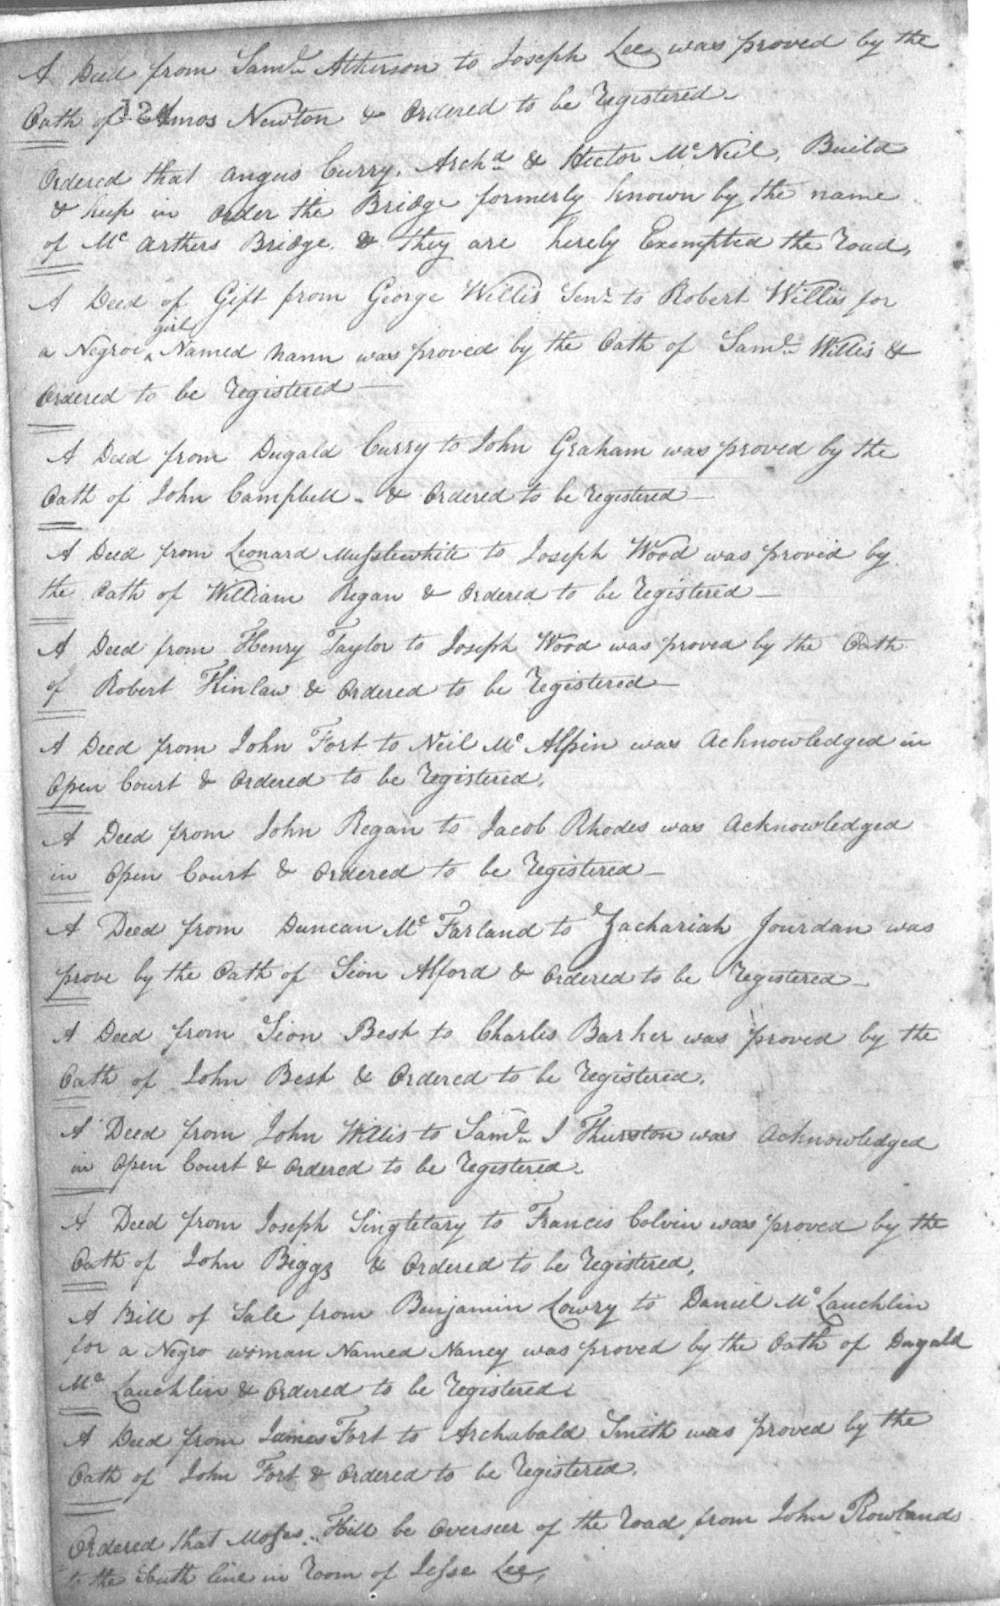 A Deed from Saml. Atherson to Joseph Lee was proved by the
Oath of Amos Newton & Ordered to be Registered
Ordered that Angus Curry, Archd. & Hector McNeil, Build
& keep in Order the Bridge formerly known by the name
of Mc Arthers Bridge & they are hereby Exempted the road,
A Deed of Gift from George Willis Senr. to Robert Willis for
a Negroe girl Named Nann was proved by the Oath of Saml. Willis &
Ordered to be Registered
A Deed from Dugald Curry to John Graham was proved by the
Oath of John Campbell & Ordered to be Registered
A Deed from Leonard Musslewhite to Joseph Wood was proved by
the Oath of William Regan & Ordered to be Registered
A Deed from Henry Taylor to Joseph Wood was proved by the Oath
of Robert Kinlaw & Ordered to be Registered
A Deed from John Fort to Neil Mc Alpin was Acknowledged in
Open Court & Ordered to be Registered.
A Deed from John Regan to Jacob Rhodes was Acknowledged
in Open Court & Ordered to be Registered
A Deed from Duncan Mc Farland to Zachariah Jourdan was
prove by the Oath of Sion Alford & Ordered to be Registered
A Deed from Sion Best to Charles Barker was proved by the
Oath of John Best & Ordered to be Registered.
A Deed from John Willis to Saml. I Thurston was Acknowledged
in Open Court & Ordered to be Registered.
A Deed from Joseph Singletary to Francis Colvin was proved by the
Oath of John Biggs & Ordered to be Registered,
A Bill of Sale from Benjamin Lowry to Daniel Mc Lauchlin
for a Negro woman Named Nancy was proved by the Oath of Dugald
Mc Lauchlin & Ordered to be Registered
A Deed from James Fort to Archabald Smith was proved by the
Oath of John Fort & Ordered to be Registered.
Ordered that Moses Hill be Overseer of the road from John Rowlands
to the South line in room of Jesse Lee,